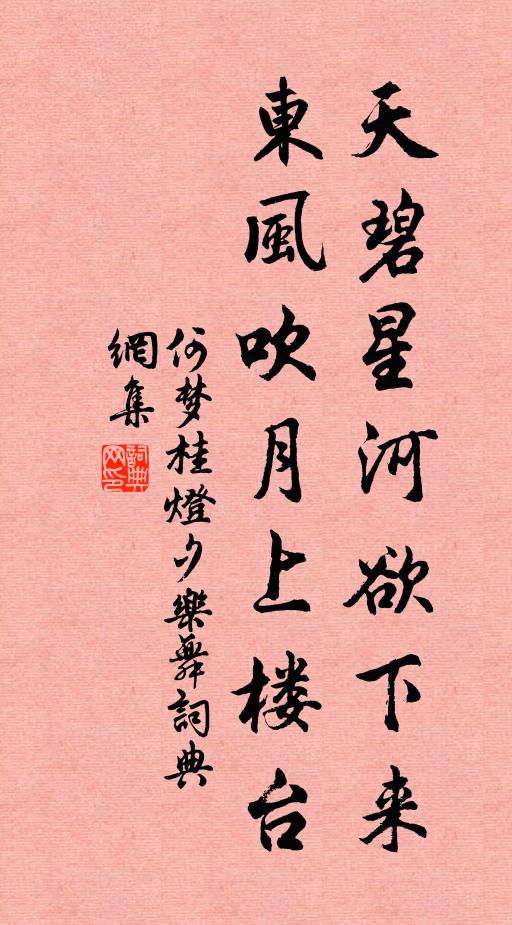 天碧星河欲下来
東風吹月上楼台
何梦桂燈夕樂舞詞典
網集
詞典网印